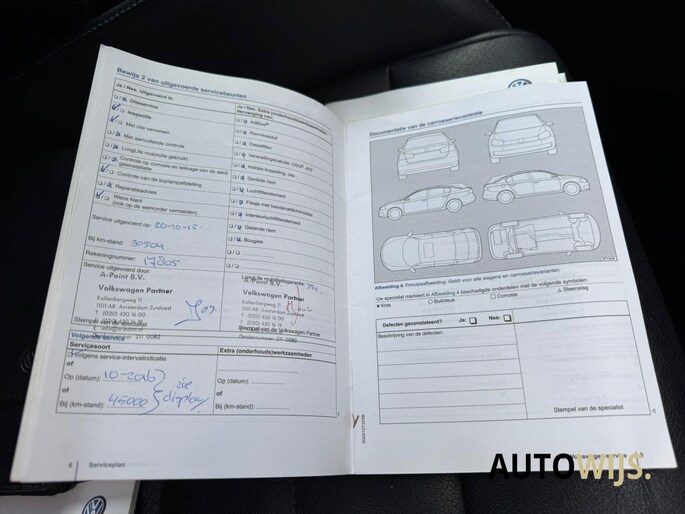 Bewijs 2 van uitgevoerde servicebeurten
Ja / Nee. Uitgevoerd is:
Olieservice
Inspectie
Met olie verversen
Met aanvullende controle
LongLife motorolie gebruikt
Controle van de koplampafstelling
Reparatieadvies
Wens klant
(ook op de werkorder vermelden)
Service uitgevoerd op: 20-10-15
Bij km-stand: 30504
Rekeningnummer: 17805
Service uitgevoerd door:
A-Point B.V.
Volkswagen Partner
Kollenbergweg 11
1101 AR Amsterdam Zuidoost
T (020) 430 16 00
Stempel van de specialist
Ja / Nee. Extra (onderhouds)werkzaamheden
Vervanging van:
AdBlue®
Remvloeistof
Dieselfilter
Haldex-koppeling: olie
Getande riem
Luchtfilterelement
Flesje met bandenafdichtmiddel
Interieurluchtfilterelement
Getande riem
Bougies
LongLife mobiliteitsgarantie
A-Point B.V.
Volkswagen Partner
Kollenbergweg 11
1101 AR Amsterdam Zuidoost
T (020) 430 16 00
Stempel van de Volkswagen Partner
Volgende service
Servicesoort
Extra (onderhouds)werkzaamheden
Volgens service-intervalindicatie
of
Op (datum): 10-2016
of
Bij (km-stand): 45000
zie
display
Op (datum):
of
Bij (km-stand):
8 Serviceplan
Documentatie van de carrosseriecontrole
Afbeelding 4 Principeafbeelding: Geldt voor alle wagens en carrosserievarianten
Uw specialist markeert in Afbeelding 4 beschadigde onderdelen met de volgende symbolen:
Kras
Buil/deuk
Corrosie
Steenslag
Defecten geconstateerd? Ja: Nee:
Beschrijving van de defecten:
Stempel van de specialist
AUTOWIJS.